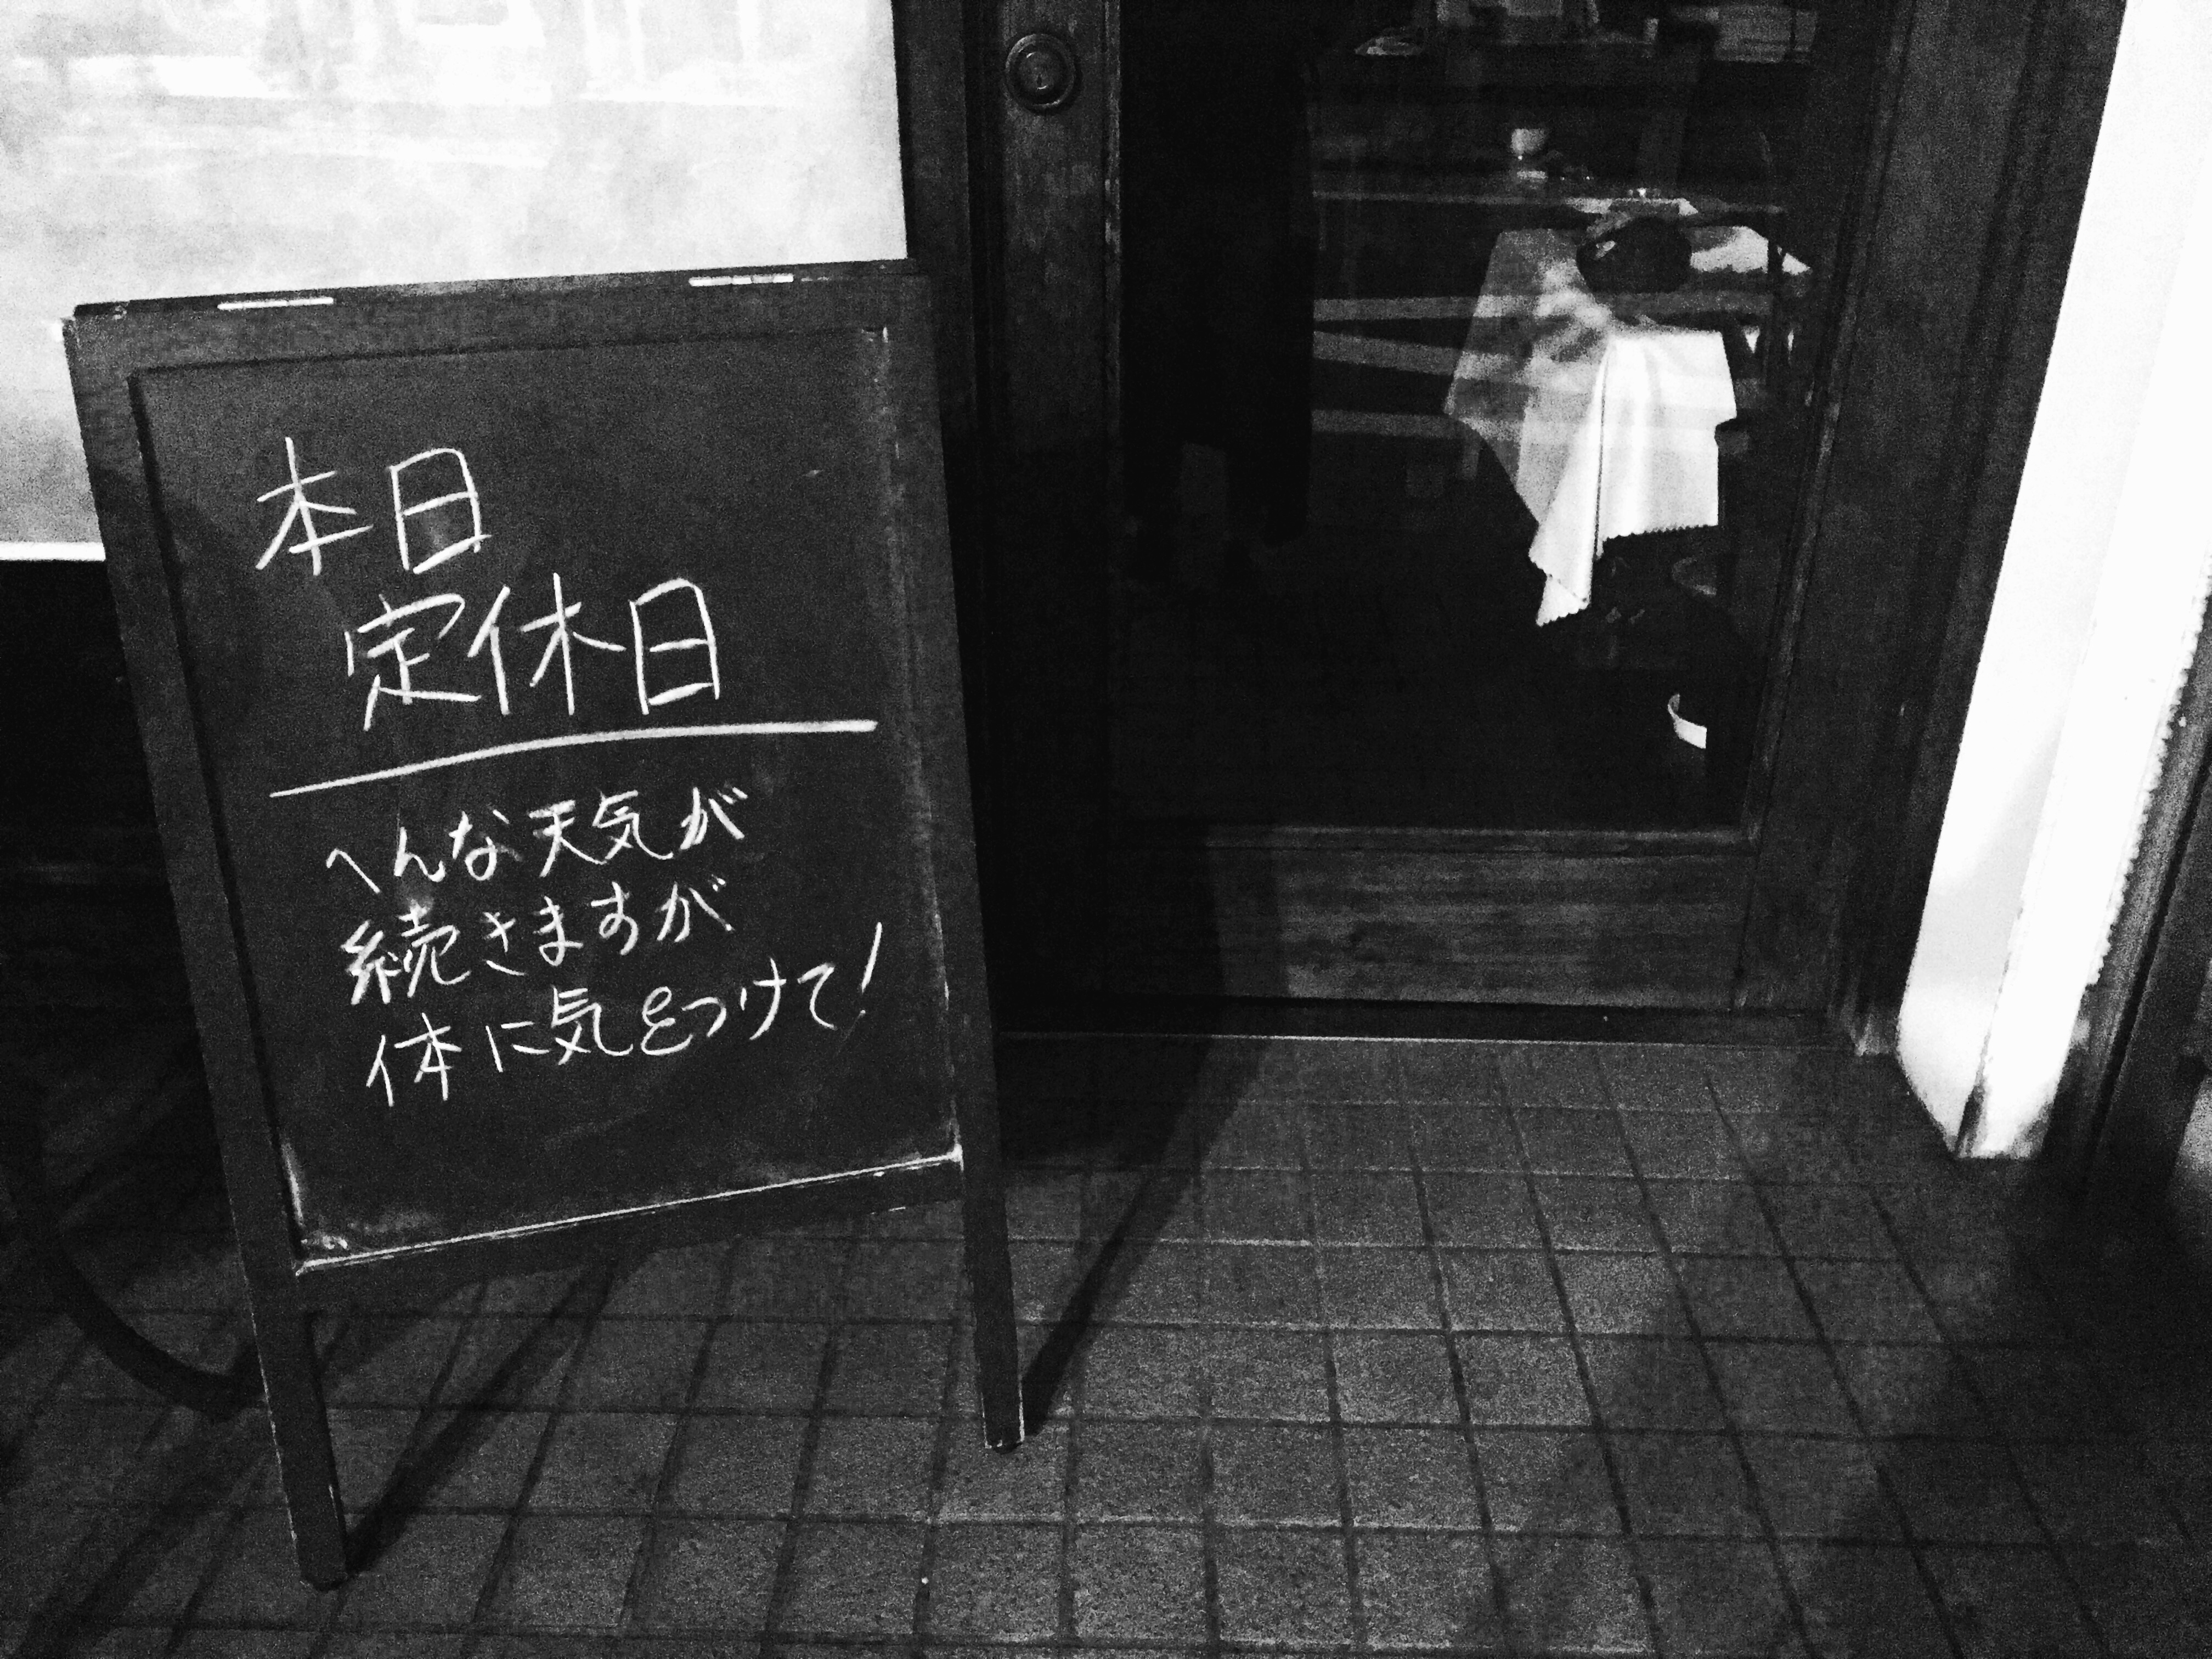 本日
定休日
へんな天気が
続きますが
体に気をつけて!